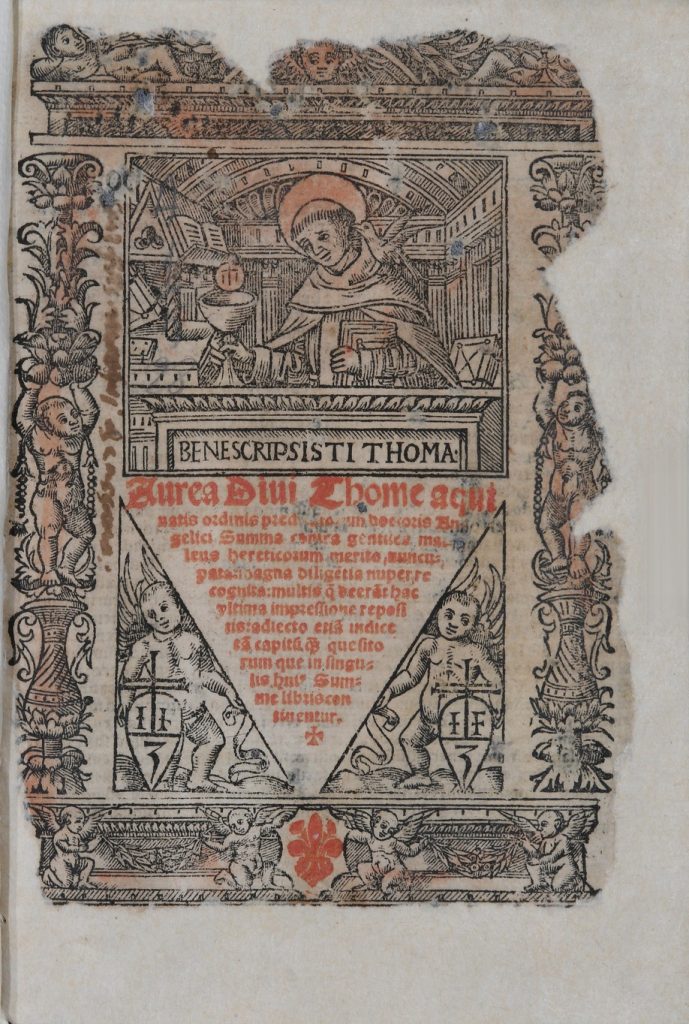 BENE SCRIPSISTI THOMA.
Aurea Divi Thome aqui
natis ordinis doctoris An
gelici Summa contra gentiles, mal
leus hereticorum merito, nuncu
pata: magna diligētia nuper, re
cognita: multis q̄ deerāt hac
vltima impressione reposi
tis: adiecto etiā indice
tā capitū, qȝ quesito
rum que in singu-
lis huiꝰ Sum-
me libris con
tinentur.
I I F
3
I F
3